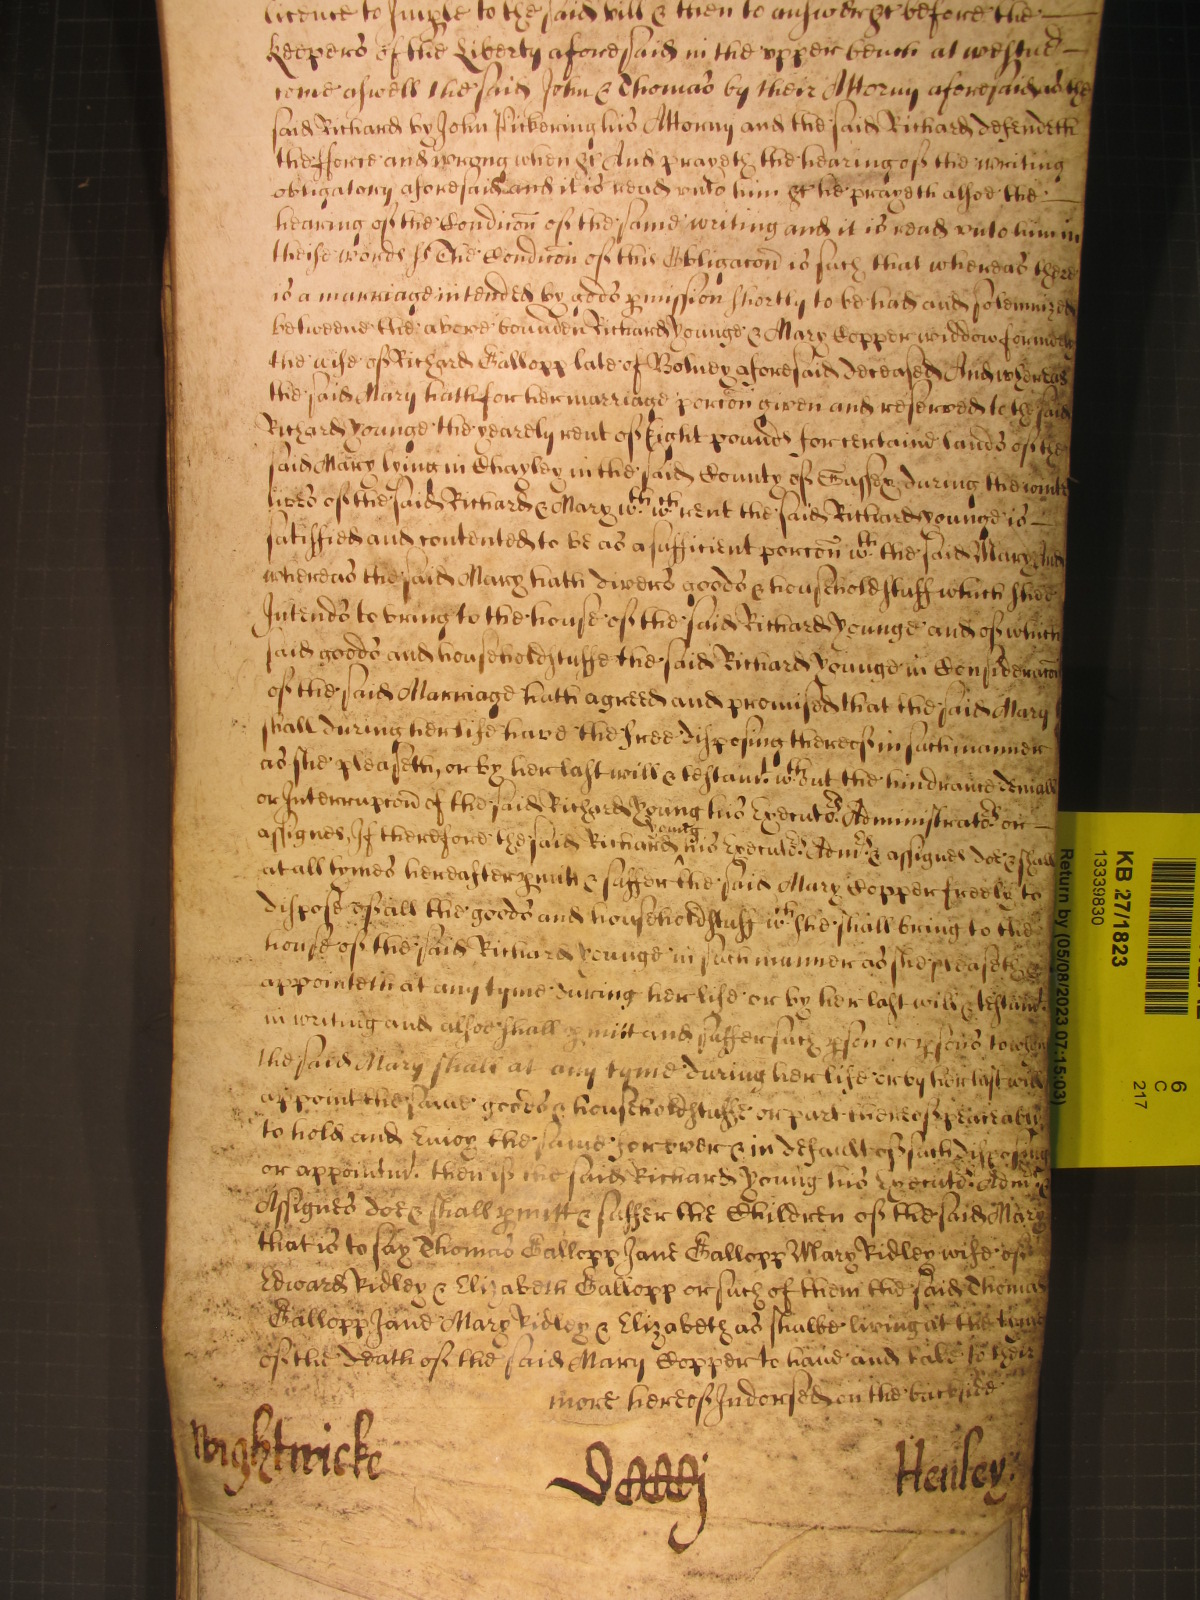 licence to Imple to the said bill & then to answer &c before the
Keepers of the Liberty aforesaid in the vpper bench at westm̃
come aswell the said John & Thomas by their Attorny aforesaid as the
said Richard by John Pickering his Attorny and the said Richard defendeth
the fforce and wrong when &c And prayeth the hearing of the writing
obligatory aforesaid and it is read vnto him &c he prayeth alsoe the
hearing of the Condicoñ of the same writing and it is read vnto him in
theise words ss The Condicoñ of this Obligacoñ is such that whereas there
is a marriage intended by gods pmission shortly to be had and solemnized
betweene the above bounden Richard Younge & Mary Copper widdow formerly
the wife of Richard Gallopp late of Bolney aforesaid deceased And whereas
the said Mary hath for her marriage porcoñ given and reserved to the said
Richard Younge the yearely rent of Eight pounds for certaine lands of the
said Mary lying in Chayley in the said County of Sussex during the ioynt
lives of the said Richard & Mary wth wch rent the said Richard Younge is
satisfied and contented to be as a sufficient porcoñ wth the said Mary And
whereas the said Mary hath divers goods & household stuff which shee
Intends to bring to the house of the said Richard Younge and of which
said goods and household stuffe the said Richard Younge in Consideracoñ
of the said Marriage hath agreed and promised that the said Mary
shall during her life have the free disposing thereof in such manner
as she pleaseth, or by her last will & testamt. wthout the hindrance deniall
or Interrupcoñ of the said Richard Young his Executors Administrators or
assignes, If therefore the said Richard Young his Executrs Admrs & assignes doe & shall
at all tymes hereafter pmitt & suffer the said Mary Copper freely to
dispose of all the goods and household stuff wch she shall bring to the
house of the said Richard Younge in such manner as she pleaseth &
appointeth at any tyme during her life or by her last will & testamt.
in writing and alsoe shall pmitt and suffer such pson or psons to whom
the said Mary shall at any tyme during her life or by her last will
appoint the same goods & household stuffe or part thereof peaceably
to hold and Enioy the same for ever & in default of such disposing
or appointmt. then if the said Richard Young his Executrs Admrs &
Assignes doe & shall pmitt & suffer the Children of the said Mary
that is to say Thomas Gallopp Jane Gallopp Mary Ridley wife of
Edward Ridley & Elizabeth Gallopp or such of them the said Thomas
Gallopp Jane Mary Ridley & Elizabeth as shalbe living at the tyme
of the death of the said Mary Copper to have and take to their
more hereof Indorsed on the backside
Wightwicke
Henley
KB 27/1823
13339830
Return by (05/08/2023 07:15:03)
6
C
217